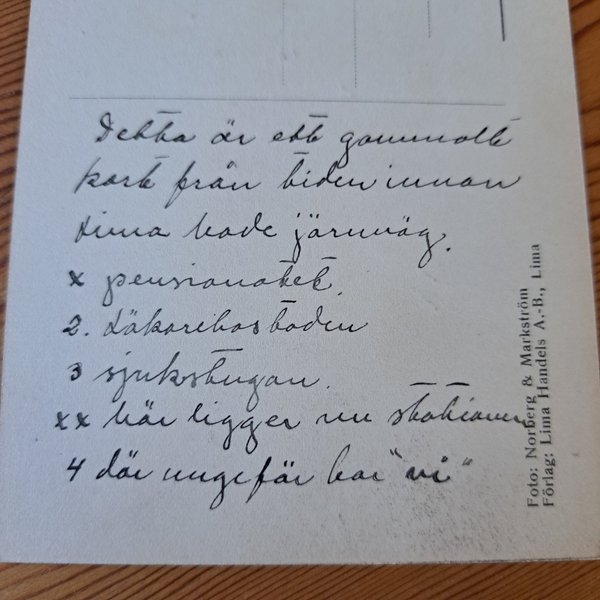 Detta är ett gammalt
kort från tiden innan
Lima hade järnväg.
x pensionatet.
2. Läkarebostaden
3 sjukstugan.
xx här ligger nu stationen
4 där ungefär bor "vi"
Foto: Norberg & Markström
Förlag: Lima Handels A.-B., Lima